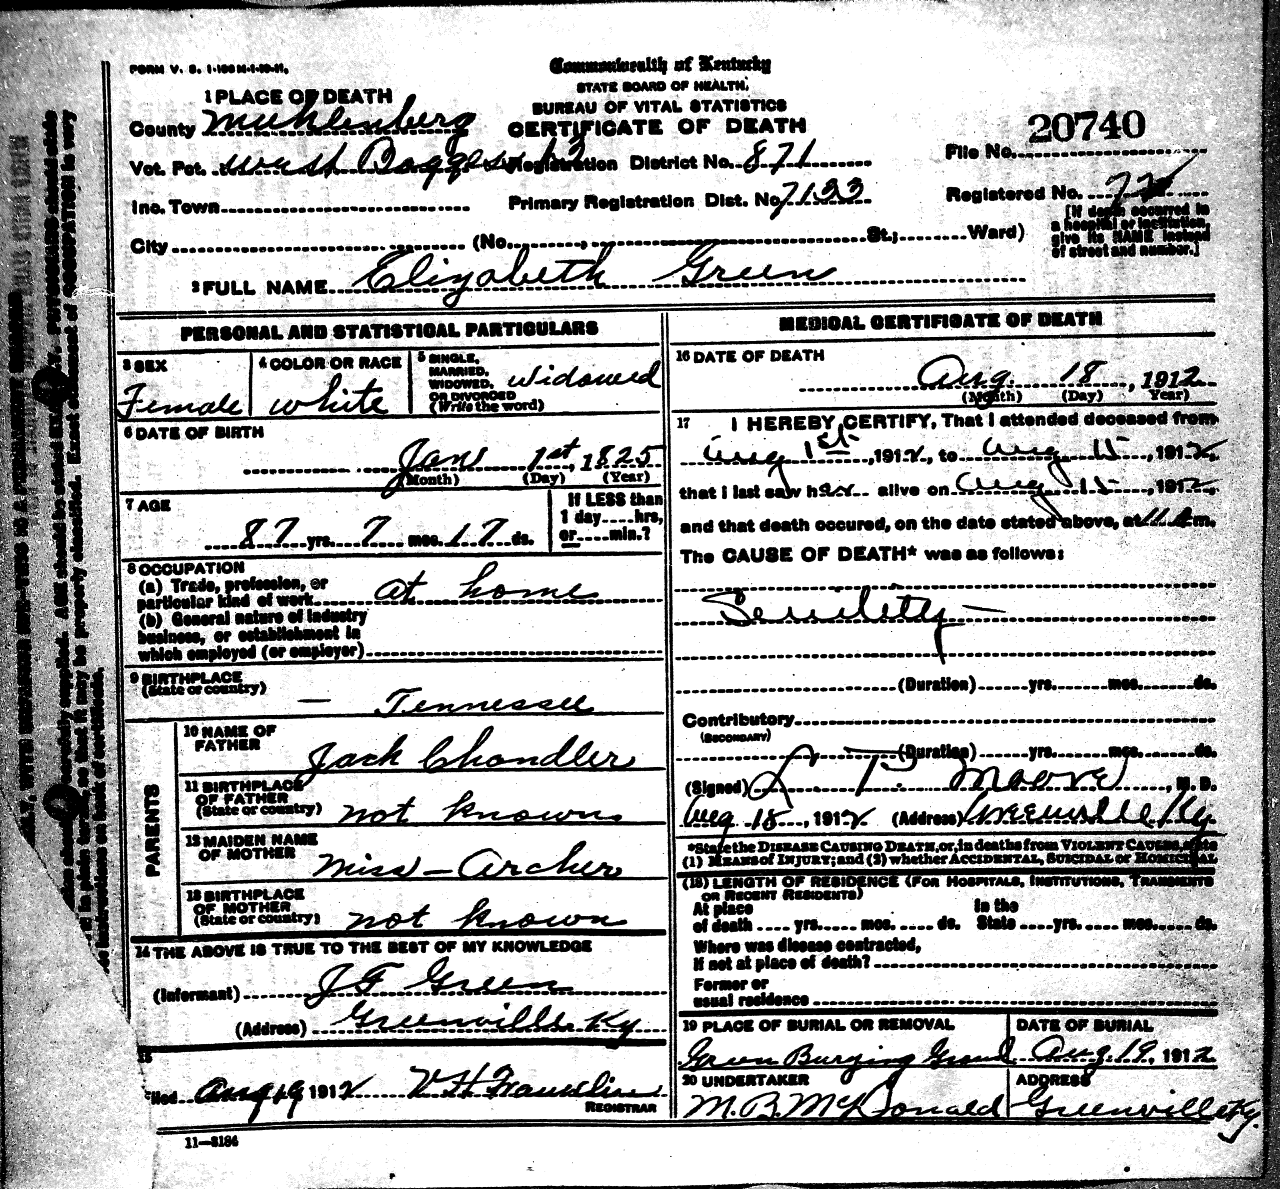 FORM V. S. 1-
Commonwealth of Kentucky
STATE BOARD OF HEALTH.
BUREAU OF VITAL STATISTICS
CERTIFICATE OF DEATH
1 PLACE OF DEATH
County Muhlenberg
Vot. Pct. West Boggess 13 Registration District No. 871
File No. 20740
Inc. Town Primary Registration Dist. No. 7133
Registered No.
[If death occurred in
a hospital or institution,
give its NAME instead
of street and number.]
City (No. , St.; Ward)
2 FULL NAME Elizabeth Green
PERSONAL AND STATISTICAL PARTICULARS
3 SEX
Female
4 COLOR OR RACE
White
5 SINGLE,
MARRIED,
WIDOWED,
OR DIVORCED
(Write the word)
Widowed
6 DATE OF BIRTH
Jans 1st, 1825
(Month) (Day) (Year)
7 AGE
87 yrs. 7 mos. 17 ds.
If LESS than
1 day hrs,
or min.?
8 OCCUPATION
(a) Trade, profession, or
particular kind of work at home
(b) General nature of industry
business, or establishment in
which employed (or employer)
9 BIRTHPLACE
(State or country)
— Tennessee
PARENTS
10 NAME OF
FATHER
Jack Chandler
11 BIRTHPLACE
OF FATHER
(State or country)
not known
12 MAIDEN NAME
OF MOTHER
Miss – Archer
13 BIRTHPLACE
OF MOTHER
(State or country)
not known
14 THE ABOVE IS TRUE TO THE BEST OF MY KNOWLEDGE
(Informant) J F Green
(Address) Greenville Ky
15
Filed Aug 19 1912
REGISTRAR
11—3184
MEDICAL CERTIFICATE OF DEATH
16 DATE OF DEATH
Aug. 18, 1912
(Month) (Day) (Year)
17 I HEREBY CERTIFY, That I attended deceased from
Aug 1st, 1912, to Aug 15, 1912,
that I last saw her alive on Aug 15, 1912,
and that death occured, on the date stated above, at 11 a m.
The CAUSE OF DEATH* was as follows:
Senility –
(Duration) yrs. mos. ds.
Contributory
(SECONDARY)
(Duration) yrs. mos. ds.
(Signed) L. P. Moore, M. D.
Aug 18, 1912 (Address) Greenville Ky.
*State the DISEASE CAUSING DEATH, or, in deaths from VIOLENT CAUSES, state
(1) MEANS of INJURY; and (2) whether ACCIDENTAL, SUICIDAL or HOMICIDAL
(18) LENGTH OF RESIDENCE (FOR HOSPITALS, INSTITUTIONS, TRANSIENTS
OR RECENT RESIDENTS)
At place In the
of death yrs. mos. ds. State yrs. mos. ds.
Where was disease contracted,
If not at place of death?
Former or
usual residence
19 PLACE OF BURIAL OR REMOVAL
Green Burying Ground
DATE OF BURIAL
Aug 19, 1912
20 UNDERTAKER
M. B. McDonald
ADDRESS
Greenville Ky.